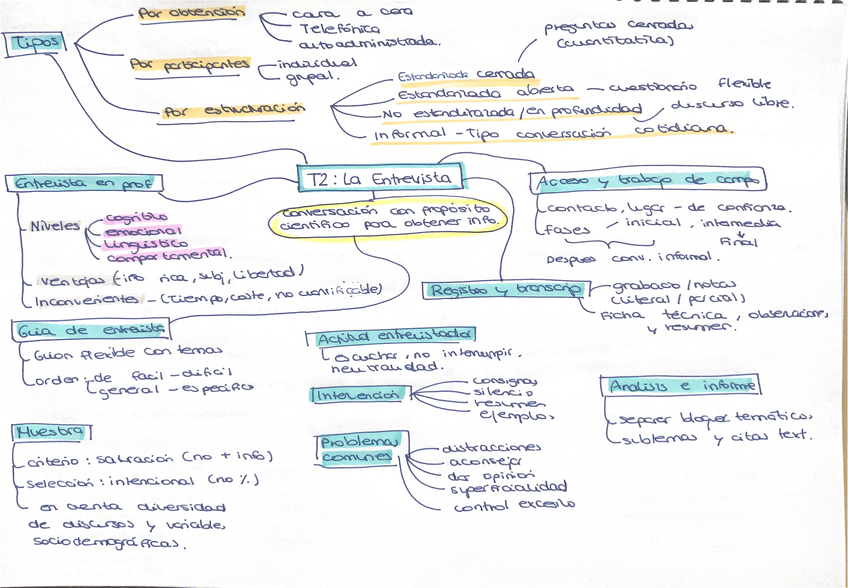 Tipos
Por obtención
cara a cara
Telefónica
autoadministrada.
Por participantes
individual
grupal.
Por estructuración
Estandarizada cerrada
preguntas cerradas
(cuantitativa)
Estandarizada abierta — cuestionario flexible
No estandarizada / en profundidad
discurso libre.
Informal - Tipo conversación cotidiana.
T2: La Entrevista
conversación con propósito
científico para obtener info.
Entrevista en prof
Niveles
cognitivo
emocional
Lingüístico
comportamental.
ventajas (info rica, subj, libertad)
Inconvenientes - (Tiempo, coste, no cuantificable)
Acceso y trabajo de campo
contacto, lugar - de confianza.
fases
inicial, intermedia
final
Después conv. informal.
Registro y transcrip
grabado/notas
(literal / parcial)
Ficha técnica, observaciones,
y resumen.
Guia de entrevista
Guion flexible con temas
orden: de facil - dificil
general - especifico
Actitud entrevistador
escuchar, no interrumpir.
neutralidad.
Intervención
consignas
silencio
resumen
ejemplos
Analisis e informe
separar bloques temáticos
subtemas y citas text.
Muestra
criterio: saturación (no + info)
selección: intencional (no %)
en cuenta diversidad
de discursos y variables
sociodemográficas.
Problemas
comunes
distracciones
aconsejar
dar opinión
superficialidad
control excesivo